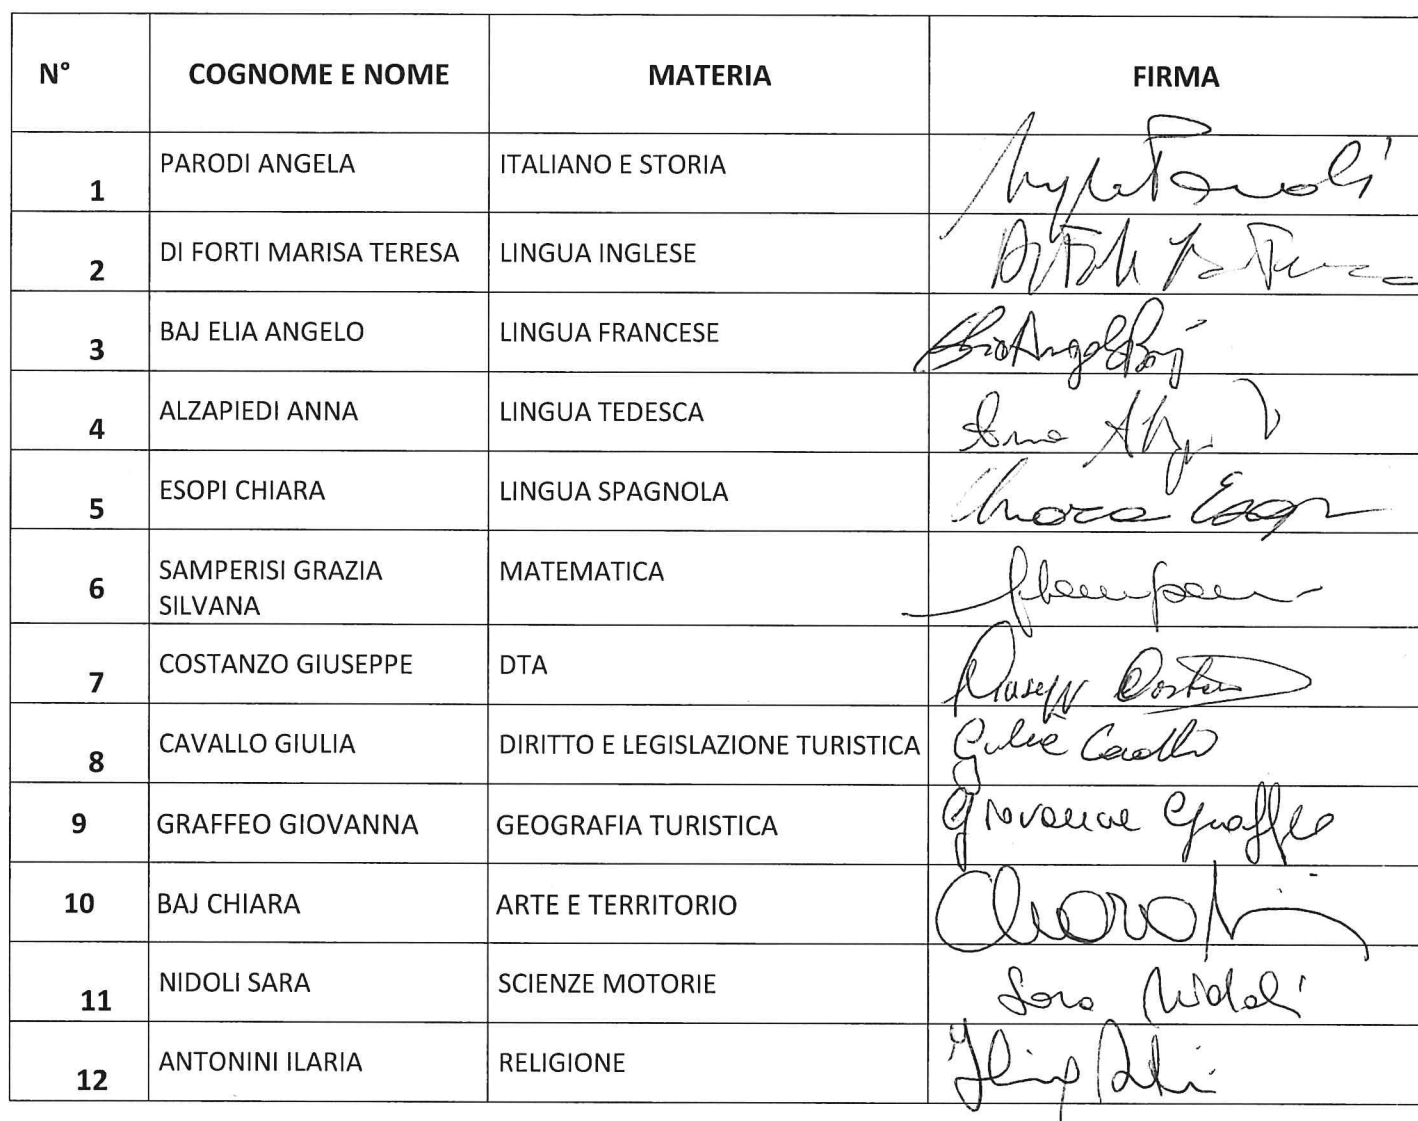 N° COGNOME E NOME MATERIA FIRMA
1 PARODI ANGELA ITALIANO E STORIA Angela Parodi
2 DI FORTI MARISA TERESA LINGUA INGLESE
3 BAJ ELIA ANGELO LINGUA FRANCESE Elia Angelo Baj
4 ALZAPIEDI ANNA LINGUA TEDESCA Anna
5 ESOPI CHIARA LINGUA SPAGNOLA Chiara Esopi
6 SAMPERISI GRAZIA
SILVANA MATEMATICA
7 COSTANZO GIUSEPPE DTA
8 CAVALLO GIULIA DIRITTO E LEGISLAZIONE TURISTICA Giulia Cavallo
9 GRAFFEO GIOVANNA GEOGRAFIA TURISTICA Giovanna Graffeo
10 BAJ CHIARA ARTE E TERRITORIO Chiara
11 NIDOLI SARA SCIENZE MOTORIE Sara Nidoli
12 ANTONINI ILARIA RELIGIONE